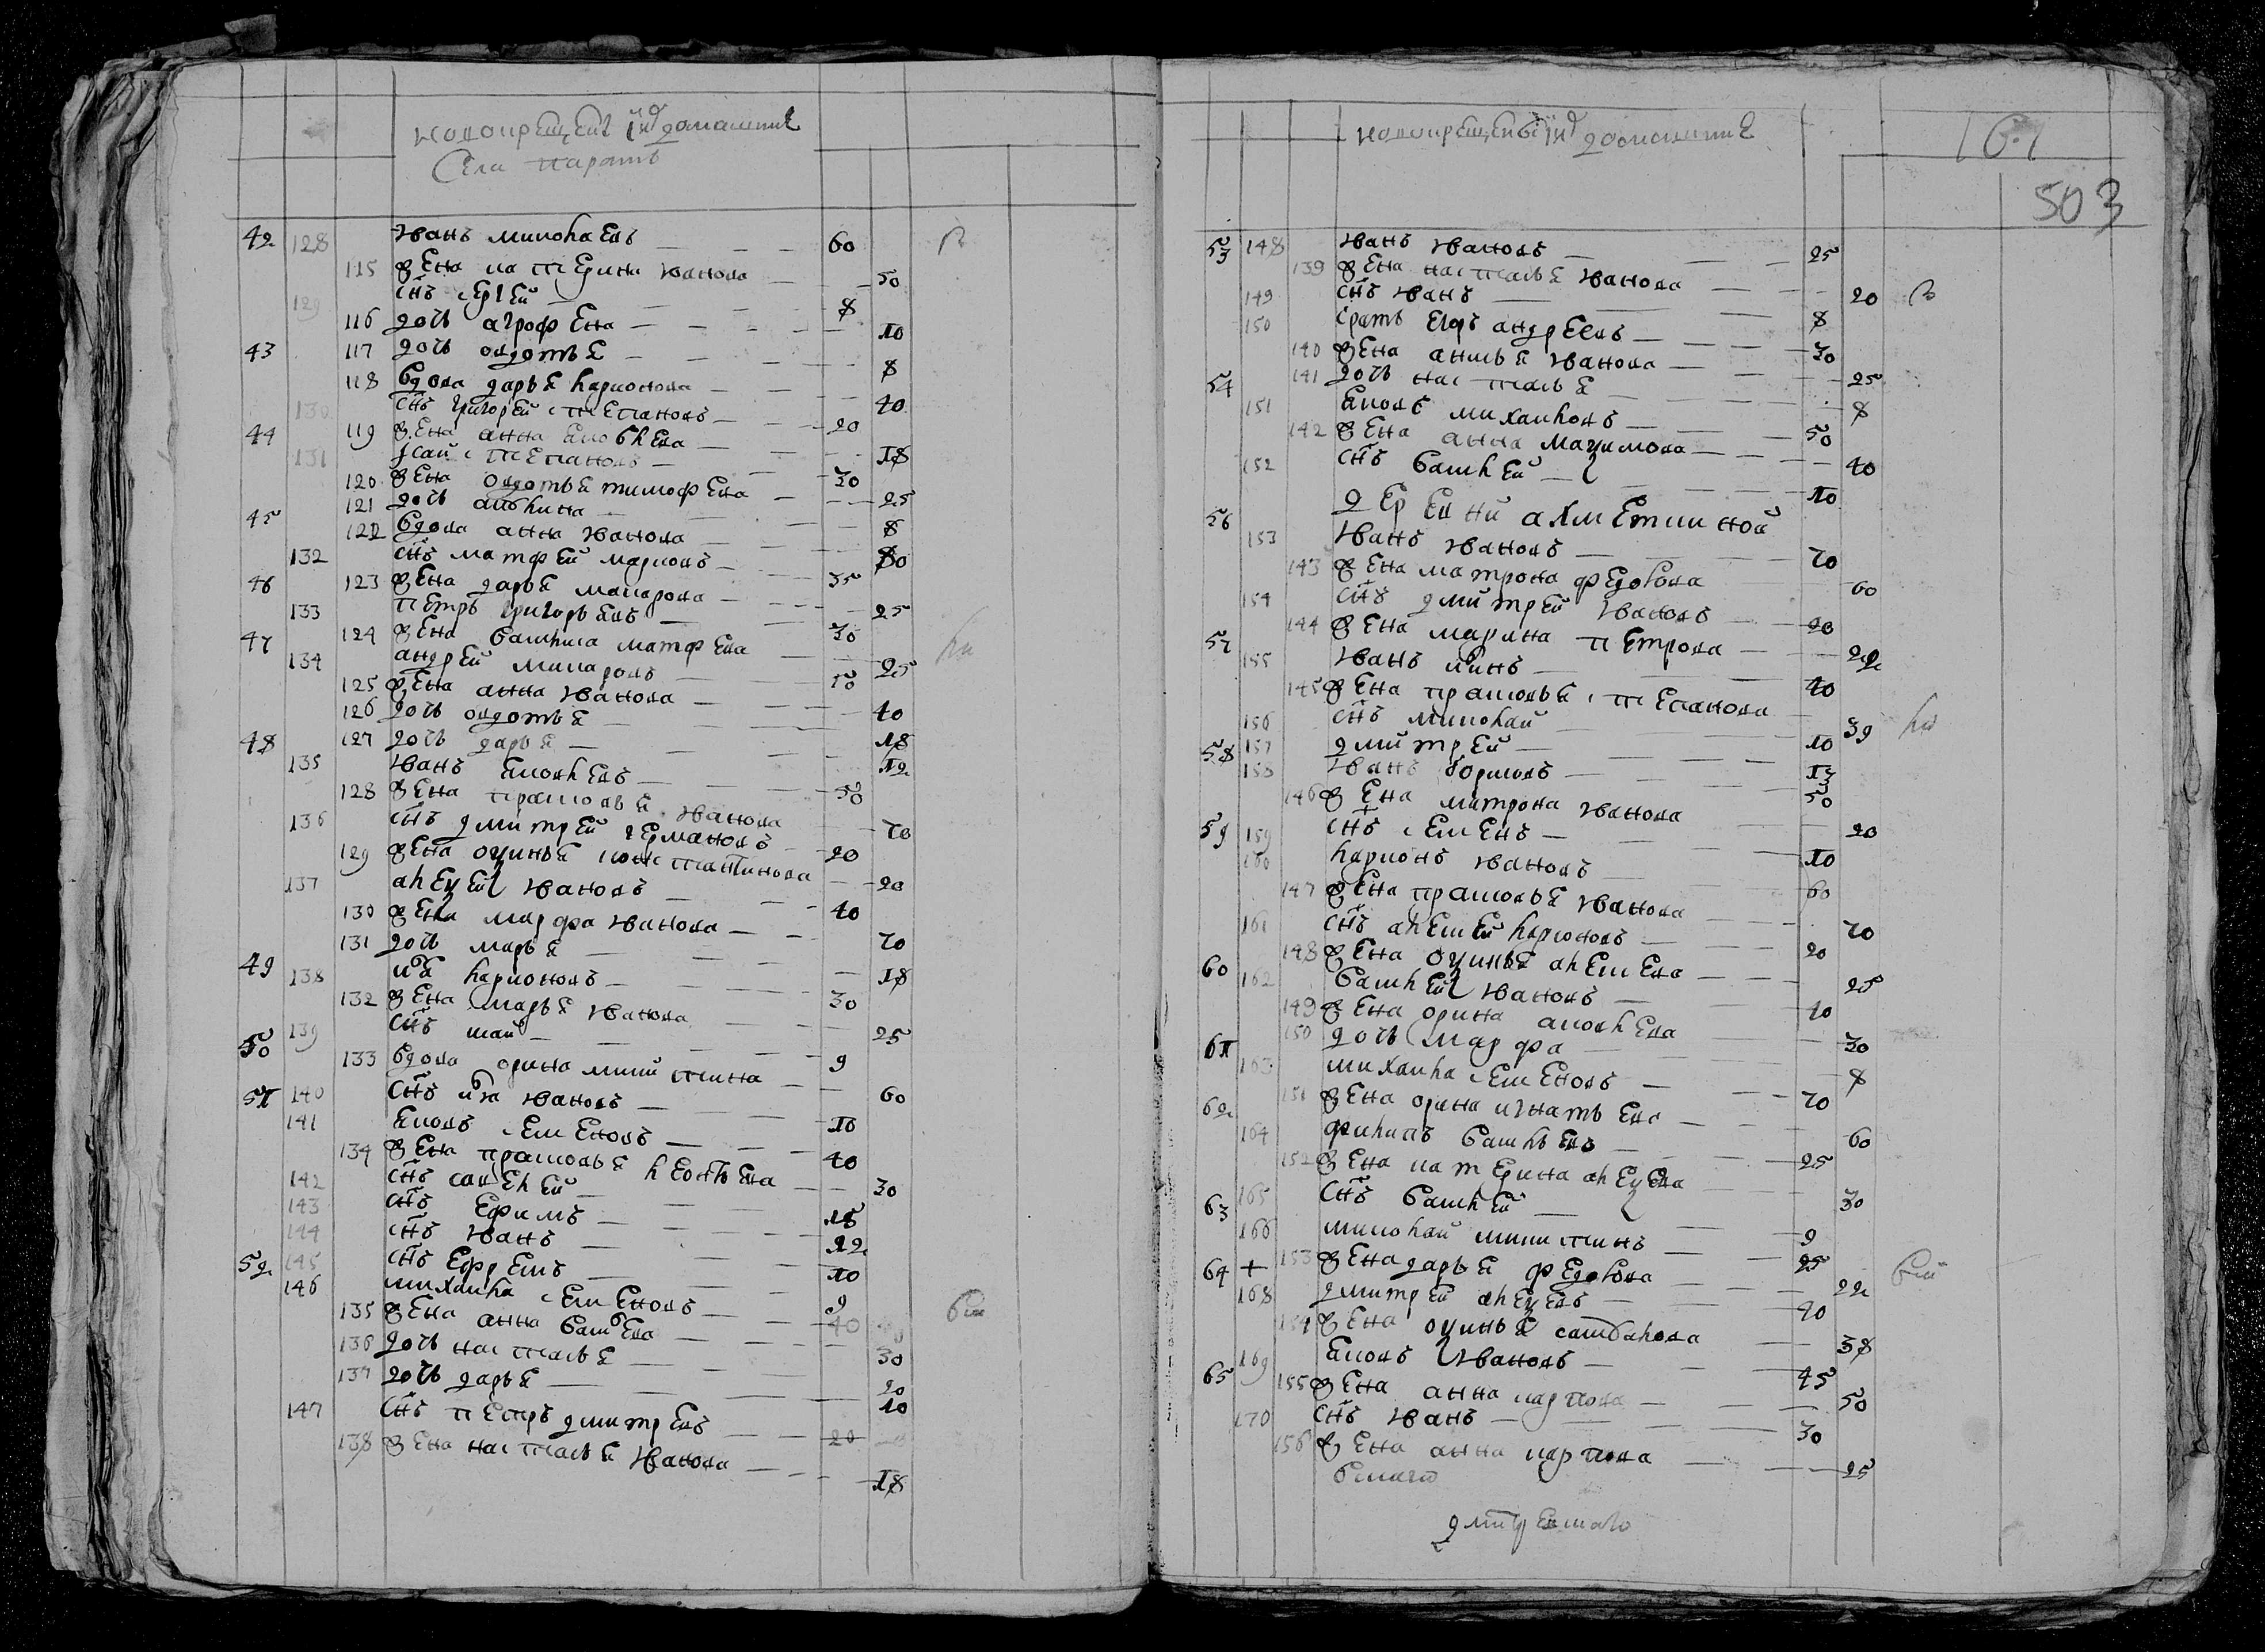 новокрещены и их домашние
села паратъ
42 128 иванъ миколаевъ 60
115 жена катерина иванова 50
129 снъ сергей 8
116 дочь аграфена 10
43 117 дочь овдотья 8
118 вдова дарья ларионова 40
130 снъ григорей степановъ 20
44 119 жена анна яковлева 18
131 исай степановъ 30
120 жена овдотья тимофеева 25
121 дочь акулина 8
45 122 вдова анна иванова 80
132 снъ матфей марковъ 35
46 123 жена дарья макарова 25
133 петръ григорьевъ 30
47 124 жена василиса матфеева 25
134 андрей макаровъ 50
125 жена анна иванова 40
126 дочь овдотья 18
48 127 дочь дарья 12
135 иванъ яковлевъ 50
128 жена прасковья иванова 70
136 снъ дмитрей германовъ 20
129 жена оксинья костантинова 20
137 алексей ивановъ 40
130 жена марфа иванова 70
131 дочь марья 18
49 138 ларионовъ 30
132 жена марья иванова 25
139 снъ 9
50 133 вдова орина микитина 60
51 140 снъ ивановъ 10
141 яковъ семеновъ 40
134 жена прасковья леонтьева 30
142 снъ савелей 18
143 снъ ефимъ 12
144 снъ иванъ 10
52 145 снъ ефремъ 9
146 михаила семеновъ 40
135 жена анна васильева 30
136 дочь настасья 20
137 дочь дарья 10
147 снъ петръ дмитревъ 20
138 жена настасья иванова 18
новокрещены и их домашние
503
53 148 иванъ ивановъ 25
139 жена настасья иванова 20
149 снъ иванъ 8
150 братъ егоръ андреевъ 30
140 жена анисья иванова 25
54 141 дочь настасья 8
151 яковъ михаиловъ 50
142 жена анна максимова 40
152 снъ василей 10
деревни ахметиной
56 153 иванъ ивановъ 70
143 жена матрона федорова 60
154 снъ дмитрей ивановъ 20
57 144 жена марина петрова 22
155 иванъ 40
145 жена прасковья степанова 39
156 снъ миколай 10
58 157 дмитрей 13
158 иванъ борисовъ 50
146 жена матрона иванова 20
59 159 снъ семенъ 10
160 ларионъ ивановъ 60
147 жена прасковья иванова 70
161 снъ алексей ларионовъ 20
60 148 жена оксинья алексеева 25
162 василей ивановъ 40
149 жена орина яковлева 30
61 150 дочь марфа 8
163 михаила семеновъ 70
62 151 жена орина игнатьева 60
164 филипъ васильевъ 25
152 жена катерина алексеева 30
63 165 снъ василей 9
166 миколай микитинъ 25
64 + 153 жена дарья федорова 22
168 дмитрей алексеевъ 40
154 жена оксинья 38
65 169 яковъ ивановъ 45
155 жена анна карпова 50
170 снъ иванъ 30
156 жена анна карпова 25